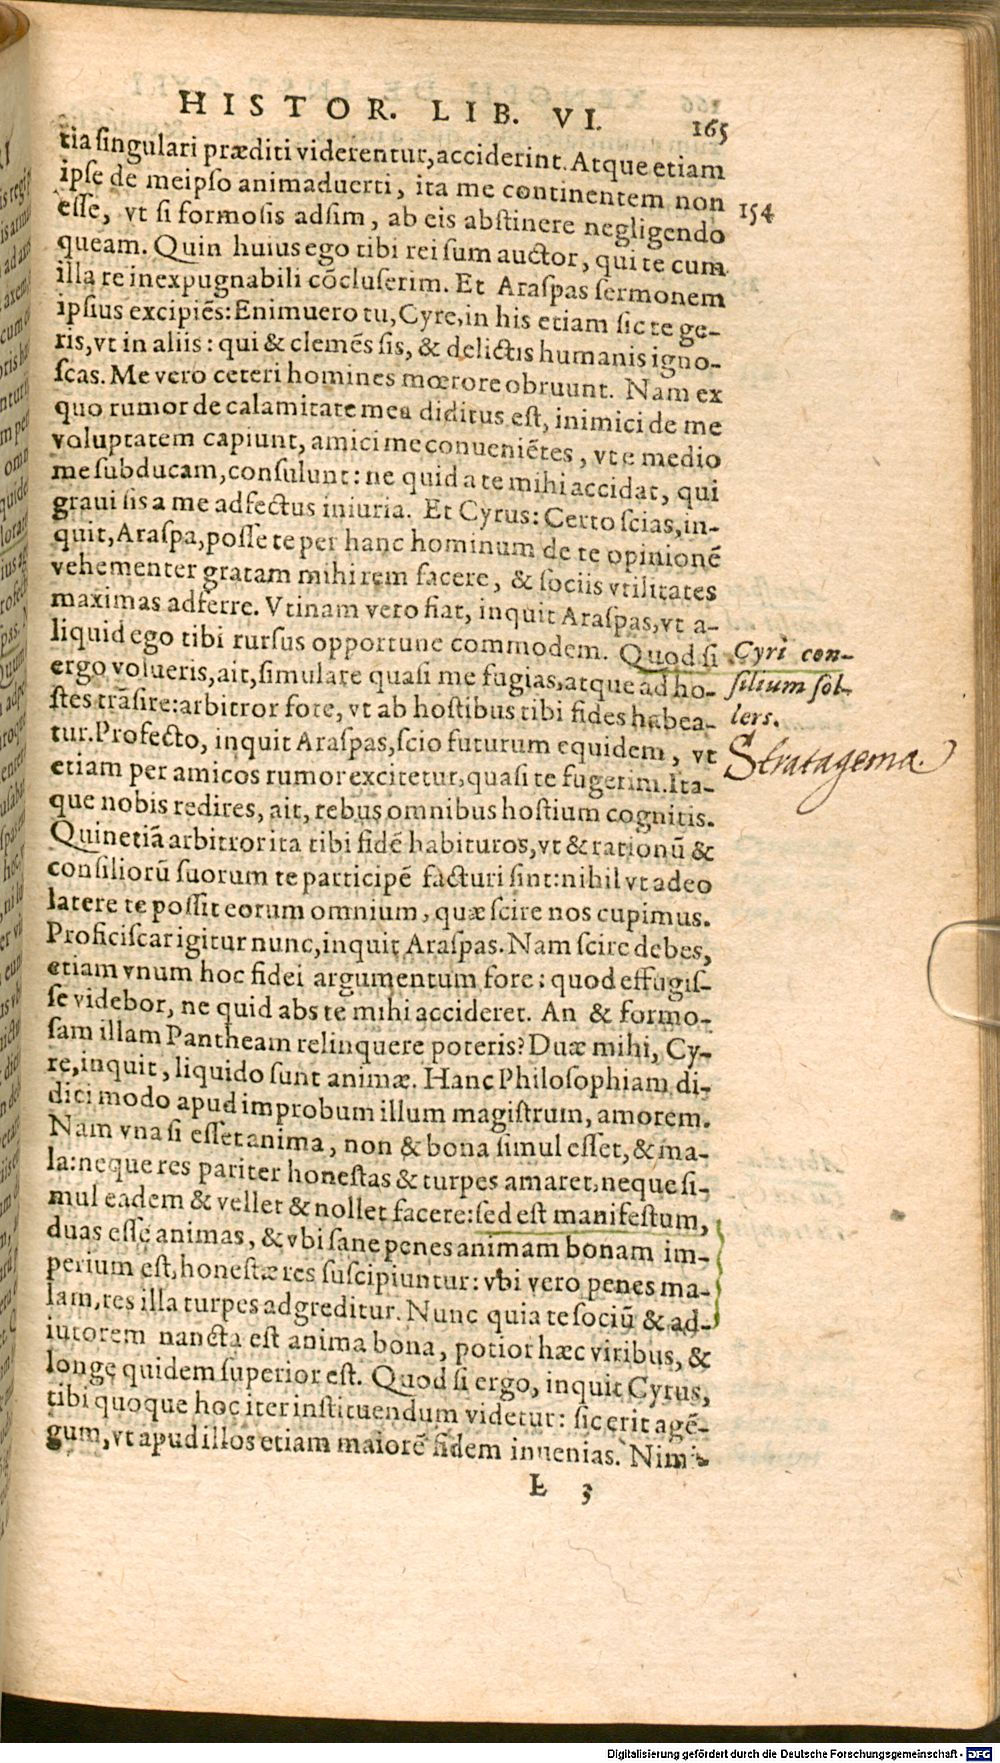 HISTOR. LIB. VI. 165
tia singulari præditi viderentur, acciderint. Atque etiam
ipse de meipso animaduerti, ita me continentem non
esse, vt si formosis adsim, ab eis abstinere negligendo 154
queam. Quin huius ego tibi rei sum auctor, qui te cum
illa re inexpugnabili cōcluserim. Et Araspas sermonem
ipsius excipiēs: Enimuero tu, Cyre, in his etiam sic te ge-
ris, vt in aliis: qui & clemēs sis, & delictis humanis igno-
scas. Me vero ceteri homines mœrore obruunt. Nam ex
quo rumor de calamitate mea diditus est, inimici de me
voluptatem capiunt, amici me conueniētes, vt e medio
me subducam, consulunt: ne quid a te mihi accidat, qui
graui sis a me adfectus iniuria. Et Cyrus: Certo scias, in-
quit, Araspa, posse te per hanc hominum de te opinionē
vehementer gratam mihi rem facere, & sociis vtilitates
maximas adferre. Vtinam vero fiat, inquit Araspas, vt a-
liquid ego tibi rursus opportune commodem. Quod si
ergo volueris, ait, simulare quasi me fugias, atque ad ho-
stes trāsire: arbitror fore, vt ab hostibus tibi fides habea-
tur. Profecto, inquit Araspas, scio futurum equidem, vt
etiam per amicos rumor excitetur, quasi te fugerim. Ita-
que nobis redires, ait, rebus omnibus hostium cognitis.
Quinetiā arbitror ita tibi fidē habituros, vt & rationū &
consiliorū suorum te participē facturi sint: nihil vt adeo
latere te possit eorum omnium, quæ scire nos cupimus.
Proficiscar igitur nunc, inquit Araspas. Nam scire debes,
etiam vnum hoc fidei argumentum fore: quod effugis-
se videbor, ne quid abs te mihi accideret. An & formo-
sam illam Pantheam relinquere poteris? Duæ mihi, Cy-
re, inquit, liquido sunt animæ. Hanc Philosophiam di-
dici modo apud improbum illum magistrum, amorem.
Nam vna si esset anima, non & bona simul esset, & ma-
la: neque res pariter honestas & turpes amaret, neque si-
mul eadem & vellet & nollet facere: sed est manifestum,
duas esse animas, & vbi sane penes animam bonam im-
perium est, honestæ res suscipiuntur: vbi vero penes ma-
lam, res illa turpes adgreditur. Nunc quia te sociū & ad-
iutorem nancta est anima bona, potior hæc viribus, &
longe quidem superior est. Quod si ergo, inquit Cyrus,
tibi quoque hoc iter instituendum videtur: sic erit agē-
gum, vt apud illos etiam maiorē fidem inuenias. Nimi-
L 3
Cyri con-
silium sol-
lers.
Stratagema.
Digitalisierung gefördert durch die Deutsche Forschungsgemeinschaft - DFG